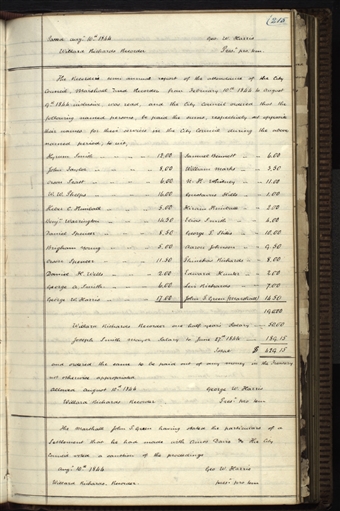 (215
Passd Augt 10th 1844 Geo. W. Harris
Willard Richards Recorder Prest pro tem.
The Recorders semi annual report of the attendance of the City
Council, Marshal and Recorder from February 10th 1844 to August
9th 1844 inclusive was read, and the City Council ordered that the
following named persons, be paid the sums, respectively set opposite
their names for their services in the City Council during the above
named period, to wit,
Hyrum Smith 13.00 Samuel Bennett 6.00
John Taylor 8.00 William Marks 3.50
Orson Pratt 6.00 N. K. Whitney 11.00
W. W. Phelps 6.00 Gustavus Hills 1.00
Heber C. Kimball 5.00 Hiram Kimball 2.00
Benjn Warrington 14.50 Elias Smith 6.00
Daniel Spencer 8.50 George
10.00
Brigham Young 5.00 Aaron Johnson 9.50
Orson Spencer 11.50 Phinehas Richards 8.00
Daniel H. Wells 2.00 Edward Hunter 2.00
George A. Smith 6.00 Levi Richards 7.00
George W. Harris 17.00 John P. Green (marshal) 14.50
Willard Richards Recorder one half years Salary 50.00
Joseph Smith mayor Salary to June 27th 1844 184.15
Total $ 424.15
and ordered the same to be paid out of any money in the Treasury
not otherwise appropriated
August 10th 1844 George W. Harris
Willard Richards Recorder Prest pro tem
The Marshal John P. Green having stated the particulars of a
Settlement that he had made with Amos Davis & the City
Council voted a sanction of the proceedings.
Augt 10th 1844 Geo W. Harris
Willard Richards, Recorder. Prest pro tem